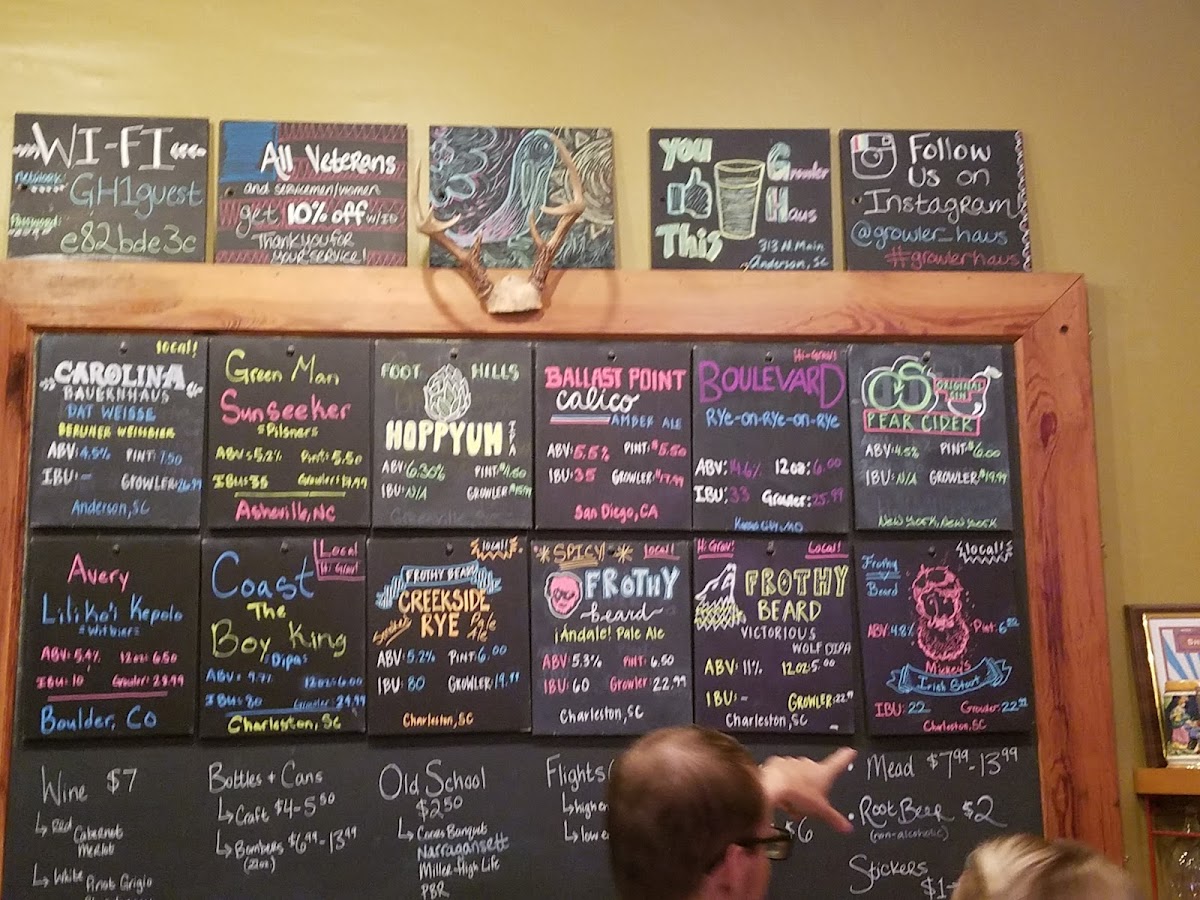 WI-FI
network:
GH1guest
Password:
e82bde3c
All Veterans
and servicemen/women
get 10% off w/ID
Thank you for
your service!
You
This
Growler
Haus
313 N. Main
Anderson, SC
Follow
us on
Instagram!
@growler_haus
#growlerhaus
local!
CAROLINA
BAUERNHAUS
DAT WEISSE
BERLINER WEISSBIER
ABV: 4.5% PINT: 7.50
IBU: - GROWLER:
Anderson, SC
Green Man
Sunseeker
Pilsners
ABV: 5.2% Pint: 5.50
IBU: 35 Growler: 19.99
Asheville, NC
FOOT HILLS
HOPPYUM
IPA
ABV: 6.30% PINT:
IBU: N/A GROWLER
BALLAST POINT
calico
AMBER ALE
ABV: 5.5% PINT: $5.50
IBU: 35 GROWLER: $17.99
San Diego, CA
Hi-Grav!
BOULEVARD
Rye-on-Rye-on-Rye
ABV: 14.6% 12oz: 6.00
IBU: 33 Growler: 25.99
Kansas City, MO
ORIGINAL
SIN
PEAR CIDER
ABV: 4.5% PINT: $6.00
IBU: N/A GROWLER: $19.99
New York, New York
Avery
Liliko'i Kepolo
Witbier
ABV: 5.4% 12oz: 6.50
IBU: 10 Growler: 28.99
Boulder, Co
Local
Hi Grav!
Coast
The
Boy King
Dipa
ABV: 9.7% 12oz: 6.00
IBU: 80 Growler: 24.99
Charleston, SC
local!
FROTHY BEARD
CREEKSIDE
RYE Pale Ale
ABV: 5.2% PINT: 6.00
IBU: 80 GROWLER: 19.99
Charleston, SC
SPICY! local!
FROTHY
beard
¡Andale! Pale Ale
ABV: 5.3% PINT: 6.50
IBU: 60 Growler: 22.99
Charleston, SC
Hi Grav! Local!
FROTHY
BEARD
VICTORIOUS
WOLF DIPA
ABV: 11% 12oz: 5.00
IBU: - GROWLER: 22.99
Charleston, SC
local!
Frothy
Beard
ABV: 4.8% Pint:
Mikey's
Irish Stout
IBU: 22 Growler: 22.99
Charleston, SC
Wine $7
Red
Cabernet
Merlot
White
Pinot Grigio
Bottles + Cans
Craft $4-5.50
Bombers $6.99-13.99
(22oz)
Old School
$2.50
Coors Banquet
Narragansett
Miller High Life
PBR
Flights
higher
$6
Mead $7.99-13.99
Root Beer $2
(non-alcoholic)
Stickers
$1-